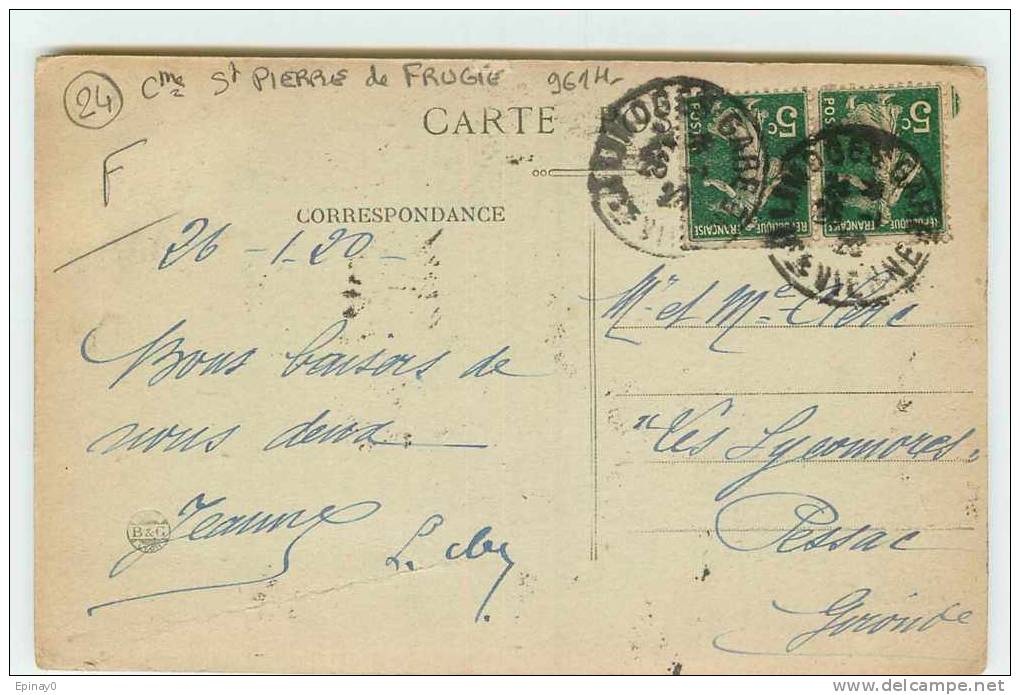 24 Cne St PIERRE de FRUGIE
CARTE
F
CORRESPONDANCE
26 - 1 - 20
Bons baisers de
nous deux
Jeanne
B&G
LIMOGES-GARE
5c 5c
POSTES POSTES
REPUBLIQUE FRANÇAISE REPUBLIQUE FRANÇAISE
LIMOGES-GARE
Hte VIENNE
Mr et Me Clerc
"Les Sycomores"
Pessac
Gironde
Epinay0
www.delcampe.net